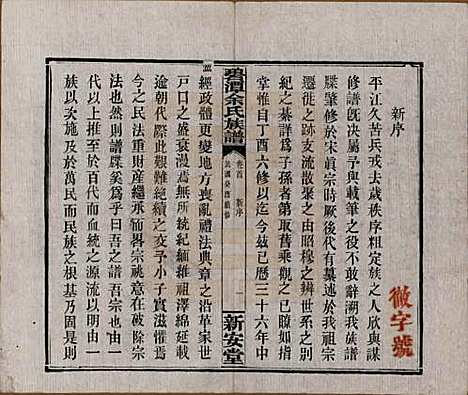 新序
平江久苦兵戎去歲秩序粗定族之人欣與謀
修譜旣决屬予與載筆之役予不敢辭溯我族譜
牒肇修於宋眞宗時厥後代有纂述其於我祖宗
遷徙之跡支流散聚之由昭穆之辨世系之別
紀之綦詳爲子孫者第取舊乘觀之已瞭如指
堂惟自丁酉六修以迄今兹已歷三十六年中
碧潭余氏族譜
卷首 新序
一
新安堂
經政體更變地方喪亂禮法典章之沿革家世
戶口之盛衰漫爲無所統紀緬維祖澤綿延載
逾朝代際此艱難絕續之交予小子實滋懼焉
今之民法重財產繼承恤畧宗祧意在破除宗
法也然於吾譜奚爲乎曰吾之譜吾宗也由一
代以上推至於百代而血統之源流以明由一
族以次施及於萬而民族之根基乃固是則
徵字號